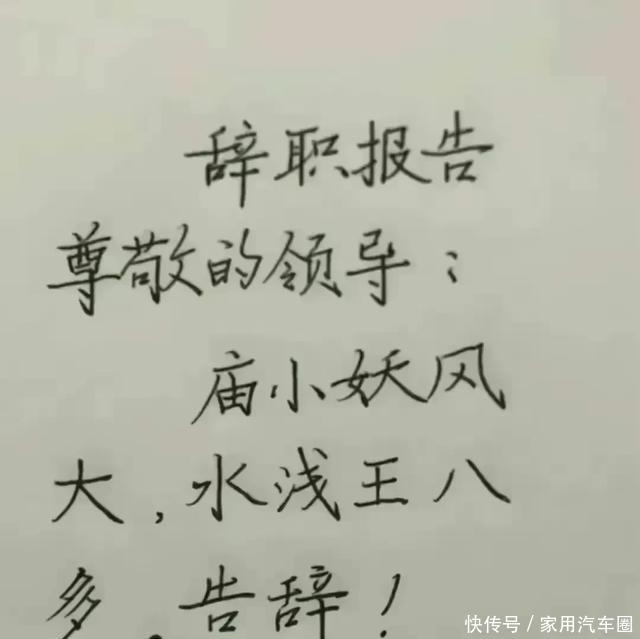 辞职报告
尊敬的领导：
庙小妖风
大,水浅王八
多,告辞!
快传号／家用汽车圈